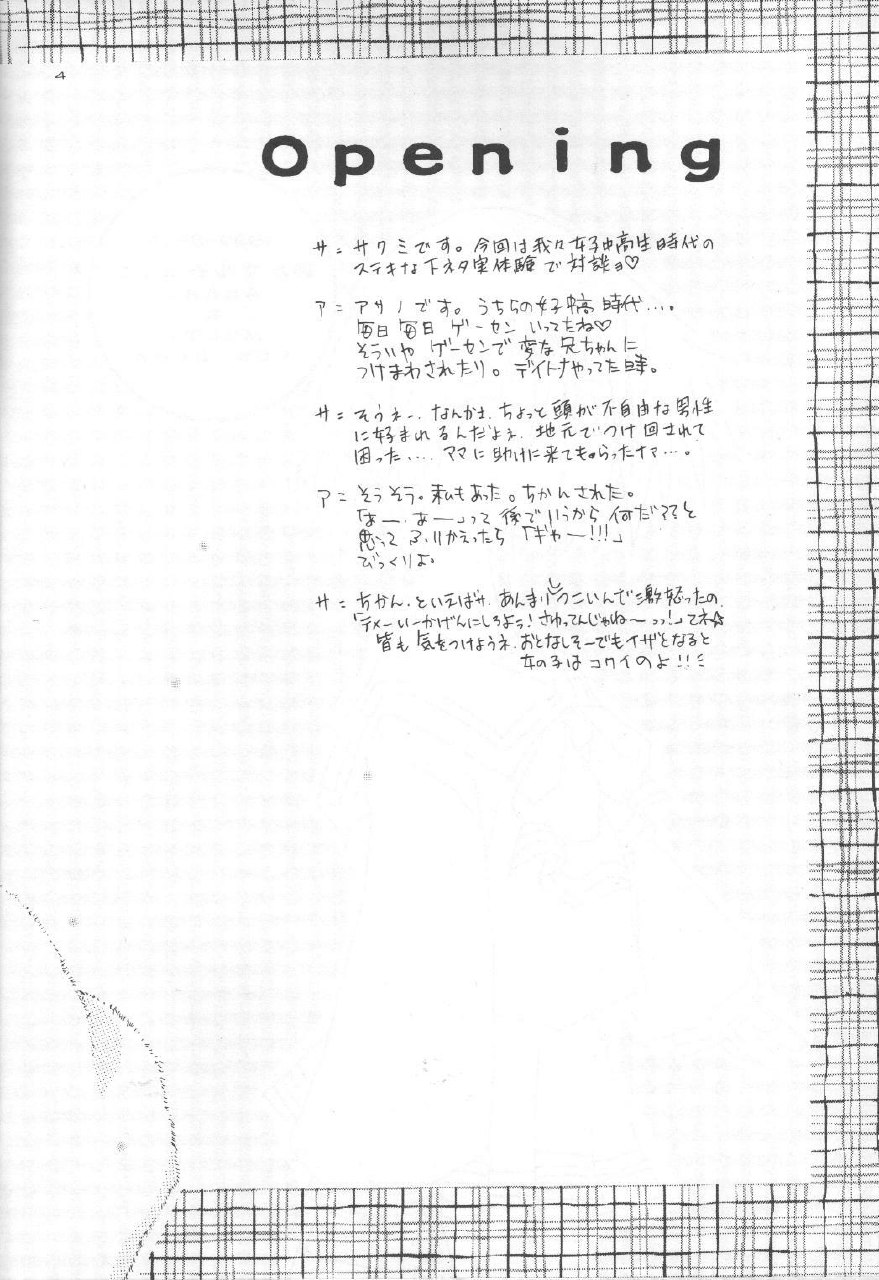 4
Opening
サ＝サクミです。今回は我々女子中高生時代の
ステキな下ネタ実体験で対談ョ♡
ア＝アサノです。うちらの女子中高時代…。
毎日毎日ゲーセンいってたね♡
そういやゲーセンで変な兄ちゃんに
つけまわされたり。デイトナやってた時。
サ＝そうネー、なんかさ、ちょっと頭が不自由な男性
に好まれるんだよネ、地元でつけ回されて
困った…。ママに助けに来てもらったナァ…。
ア＝そうそう。私もあった。ちかんされた。
「はー、はー」って後でいうから何だ??と
思ってふりかえったら「ギャー!!!」
びっくりよ。
サ＝ちかん、といえばサ、あんまりしつこいんで激怒ったの、
「テメーいーかげんにしろよぅ！さわってんじゃねーっっ！」てネ☆
皆も気をつけようネ、おとなしそーでもイザとなると
女の子はコワイのよ!!ミ